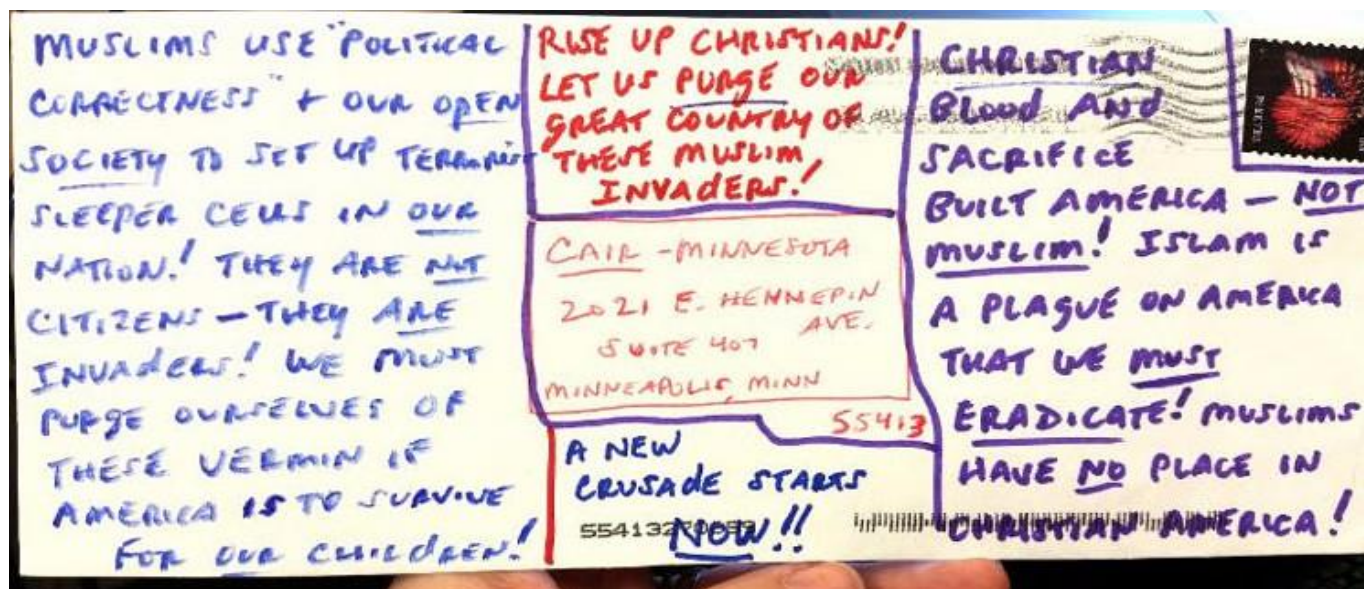 MUSLIMS USE "POLITICAL
CORRECTNESS" + OUR OPEN
SOCIETY TO SET UP TERRORIST
SLEEPER CELLS IN OUR
NATION! THEY ARE NOT
CITIZENS - THEY ARE
INVADERS! WE MUST
PURGE OURSELVES OF
THESE VERMIN IF
AMERICA IS TO SURVIVE
FOR OUR CHILDREN!
RISE UP CHRISTIANS!
LET US PURGE OUR
GREAT COUNTRY OF
THESE MUSLIM
INVADERS!
CAIR - MINNESOTA
2021 E. HENNEPIN
AVE.
SUITE 407
MINNEAPOLIS, MINN
55413
A NEW
CRUSADE STARTS
NOW!!
CHRISTIAN
BLOOD AND
SACRIFICE
BUILT AMERICA - NOT
MUSLIM! ISLAM IS
A PLAGUE ON AMERICA
THAT WE MUST
ERADICATE! MUSLIMS
HAVE NO PLACE IN
CHRISTIAN AMERICA!